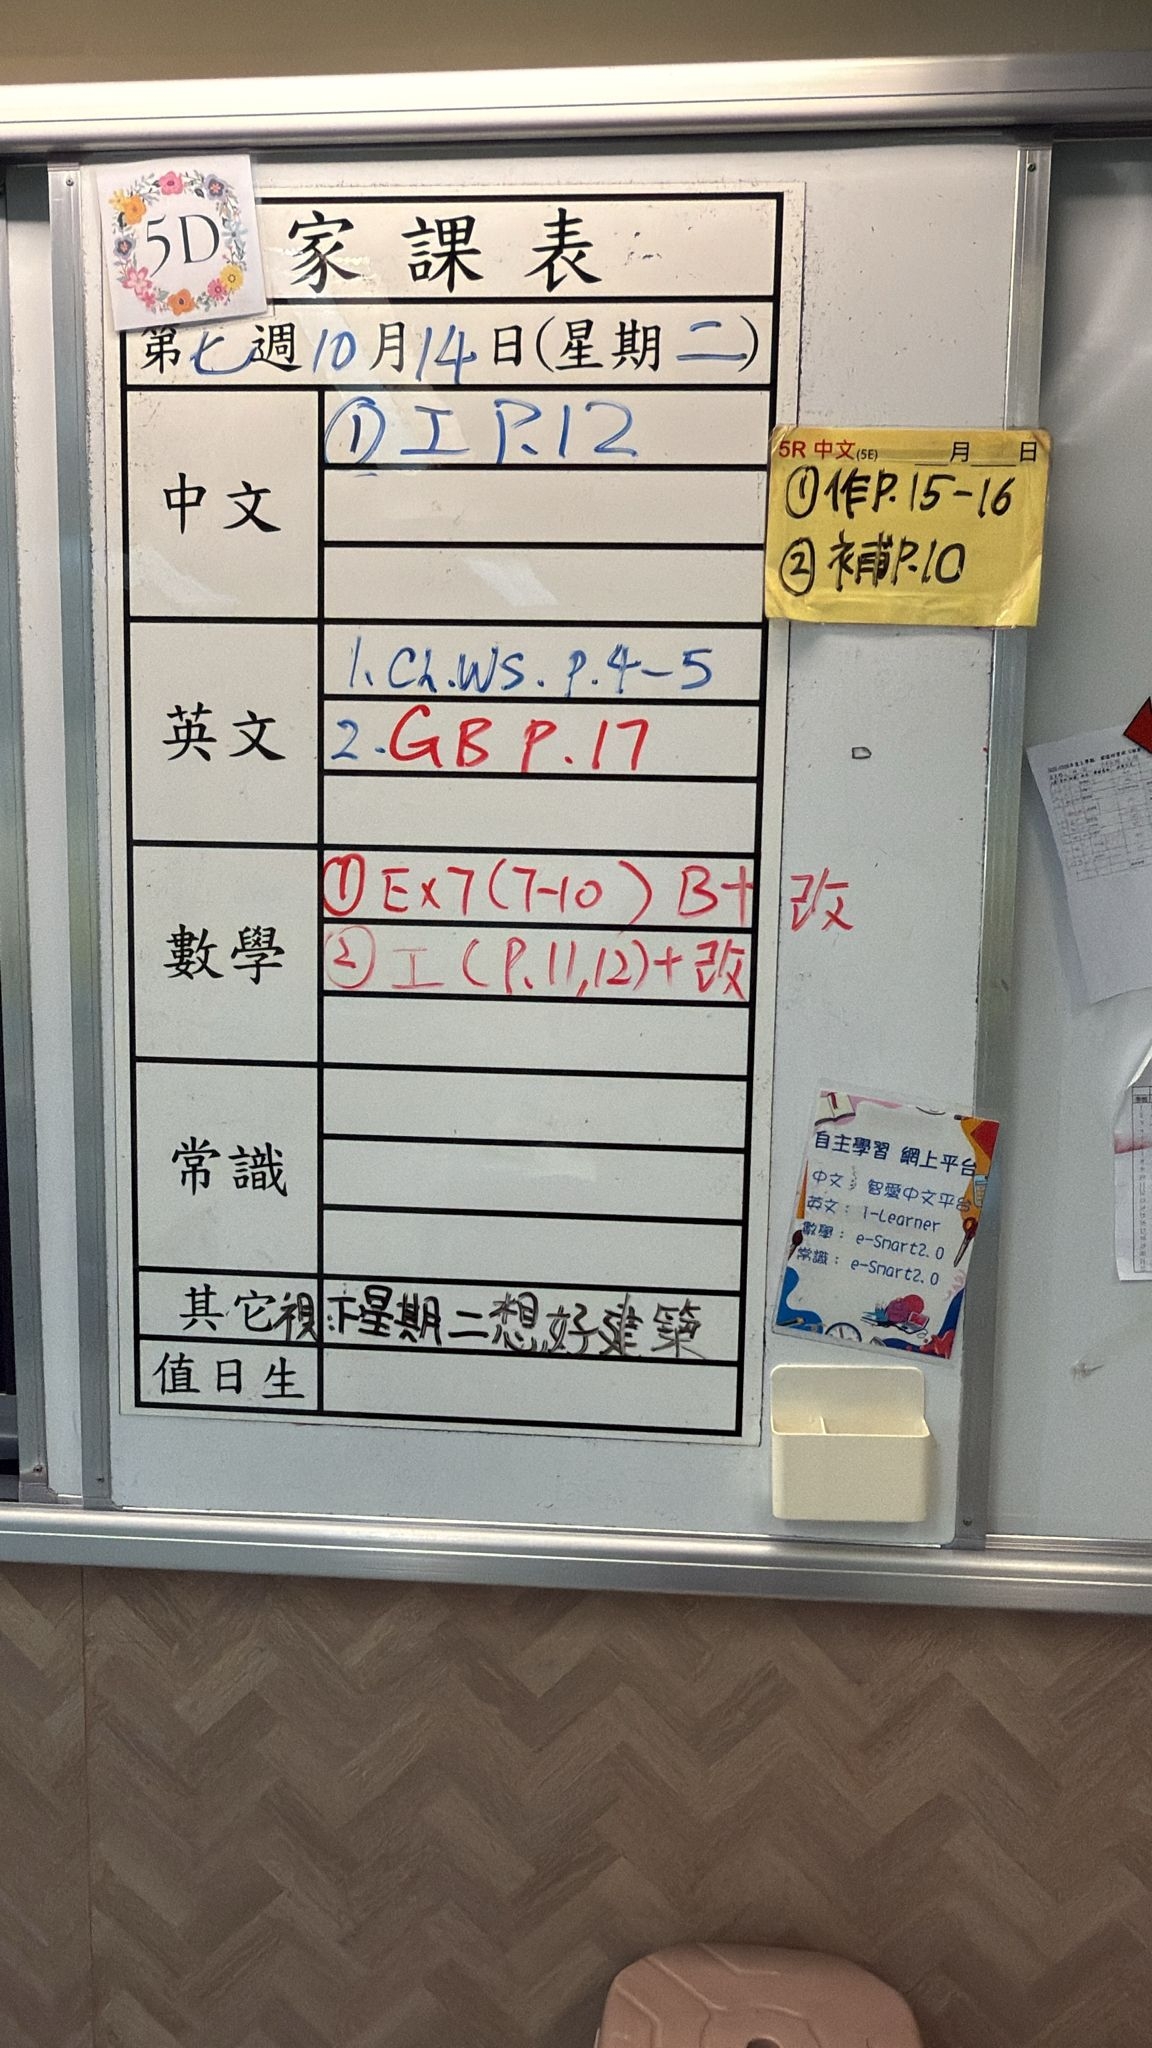 5D
家課表
第七週10月14日(星期二)
中文
① 工 P.12
英文
1. Ch.WS. p.4-5
2. GB P.17
數學
① Ex7(7-10) B+改
② 工(P.11,12)+改
常識
其它 視:下星期二想好建築
值日生
5R 中文(5E) 月 日
①作P.15-16
②補P.10
自主學習 網上平台
中文: 智愛中文平台
英文: i-Learner
數學: e-Smart2.0
常識: e-Smart2.0